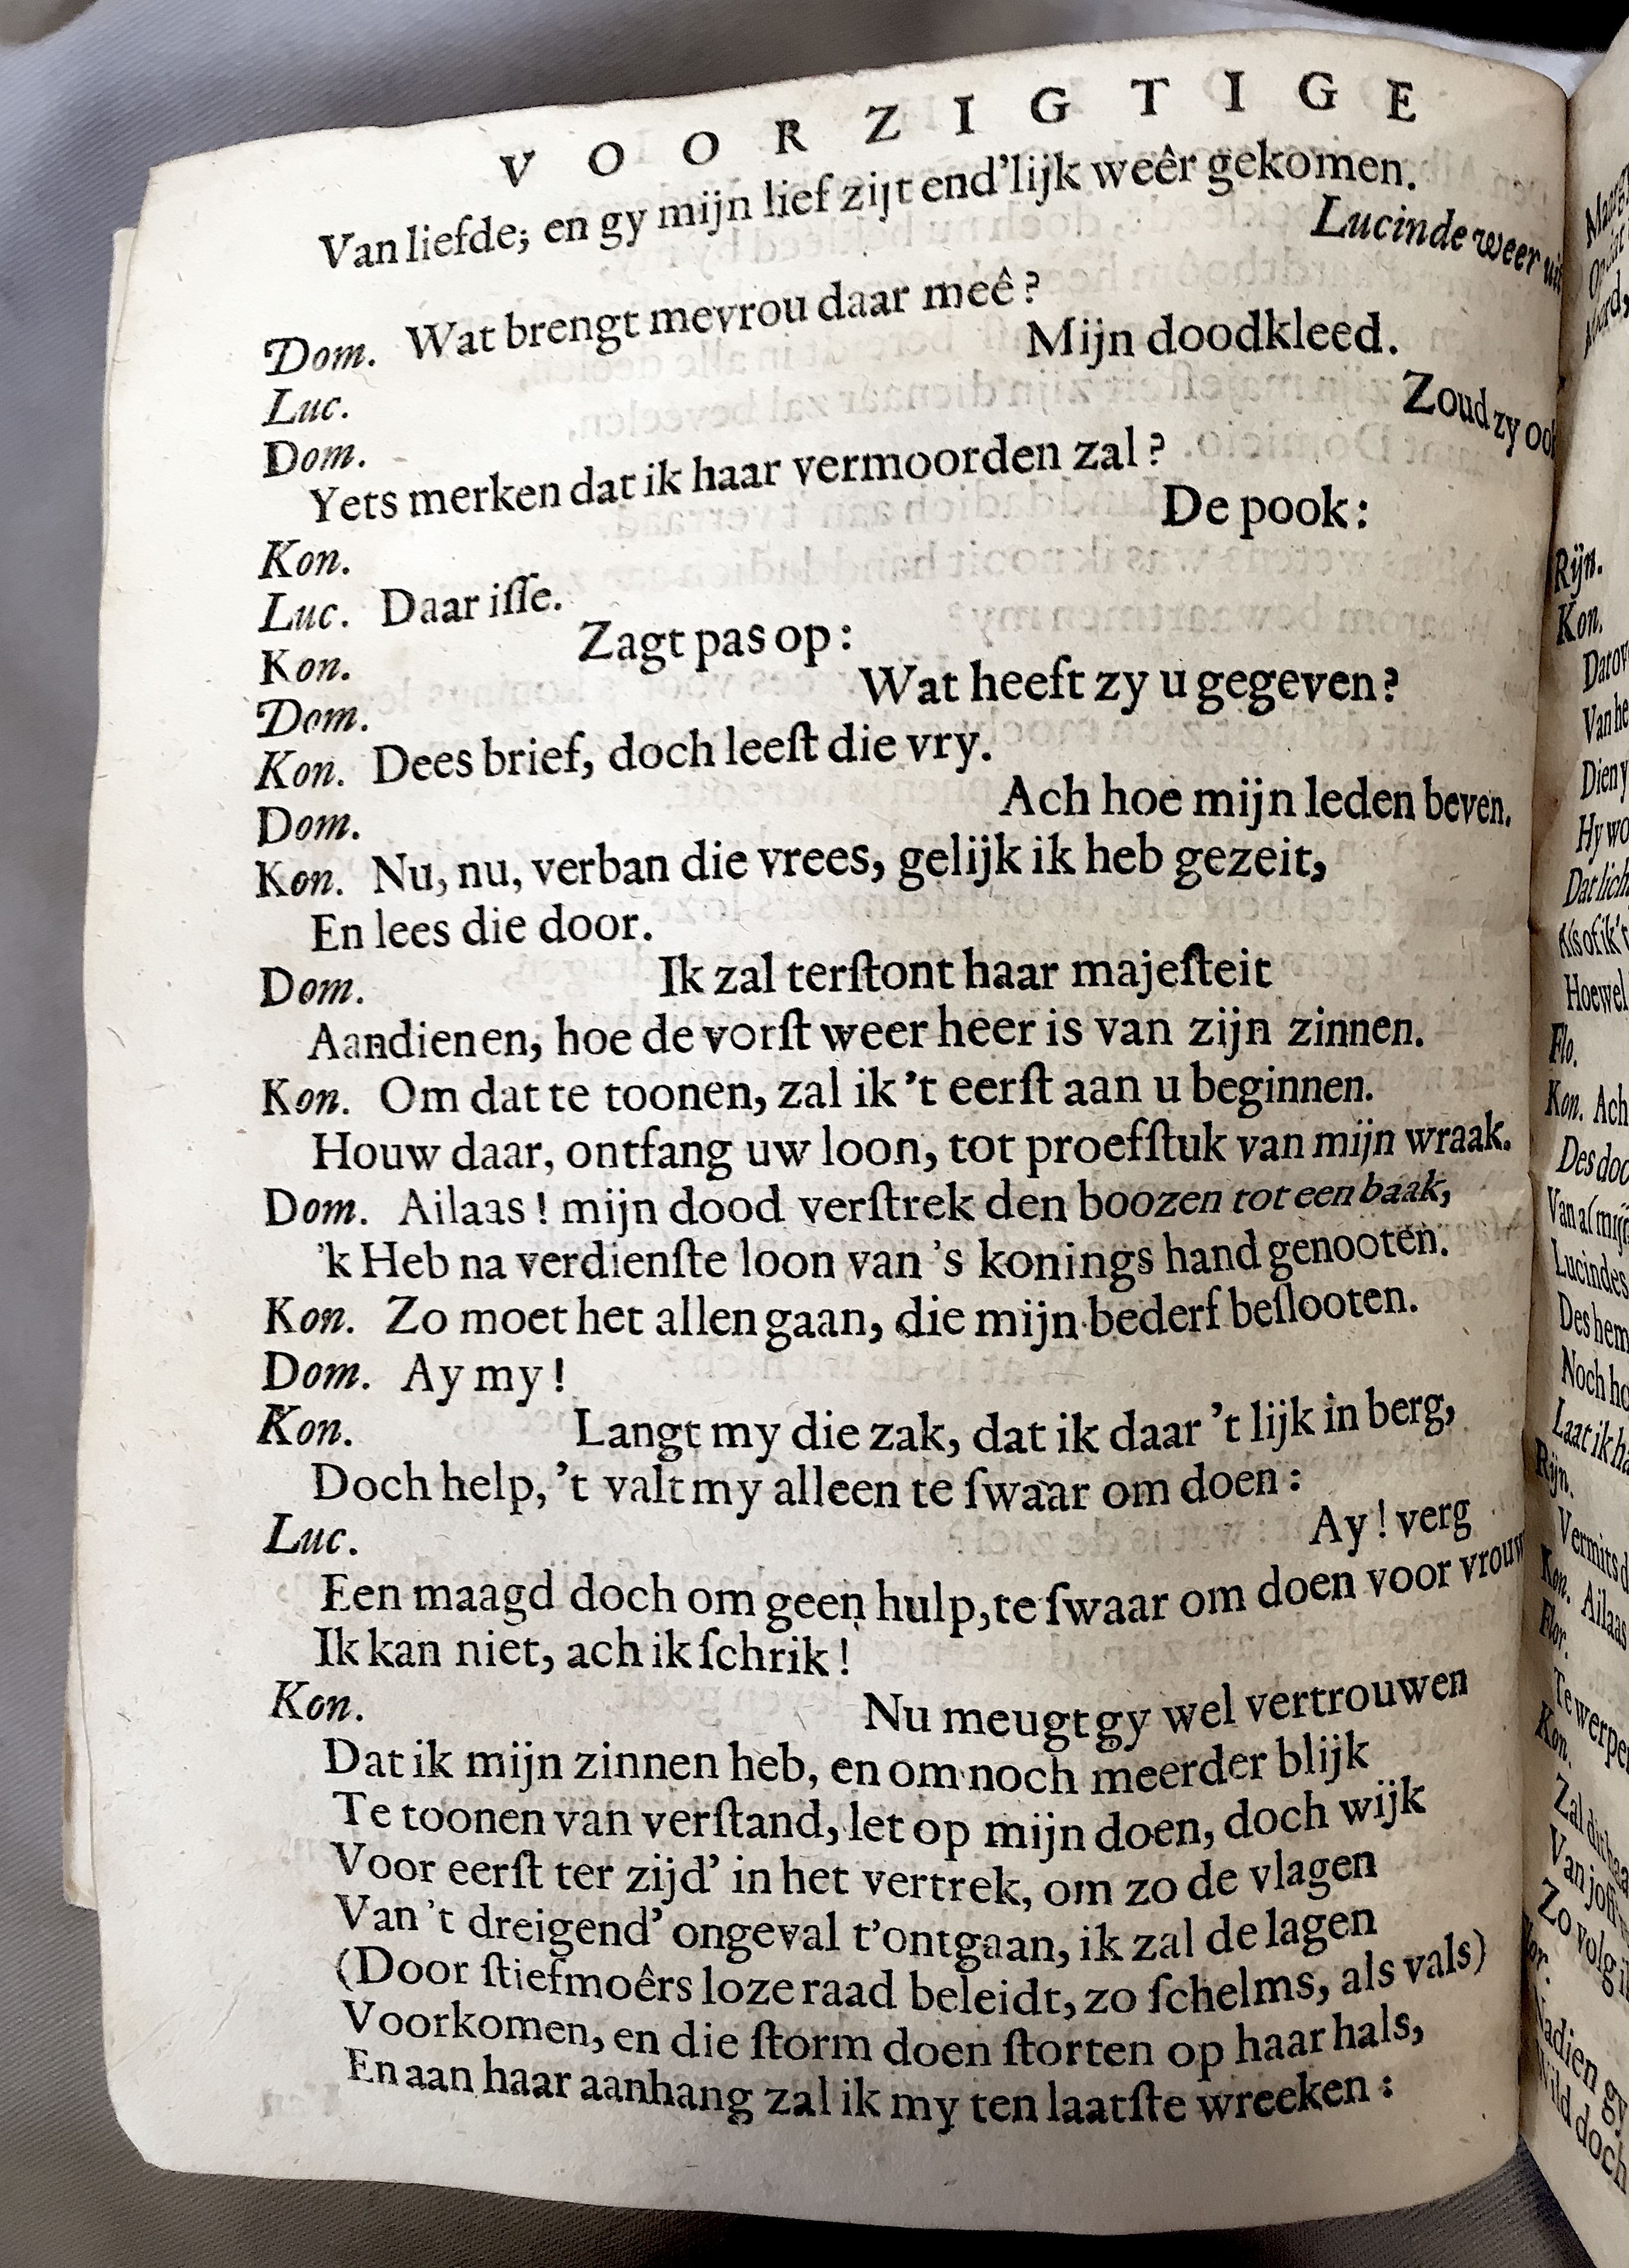 VOORZIGTIGE
Van liefde; en gy mijn lief zijt end'lijk weêr gekomen.
Lucinde weer uit
Dom. Wat brengt mevrou daar meê?
Luc. Mijn doodkleed.
Dom. Zoud zy ook
Yets merken dat ik haar vermoorden zal?
Kon. De pook:
Luc. Daar iſſe.
Kon. Zagt pas op:
Dom. Wat heeft zy u gegeven?
Kon. Dees brief, doch leeſt die vry.
Dom. Ach hoe mijn leden beven.
Kon. Nu, nu, verban die vrees, gelijk ik heb gezeit,
En lees die door.
Dom. Ik zal terſtont haar majeſteit
Aandienen, hoe de vorſt weer heer is van zijn zinnen.
Kon. Om dat te toonen, zal ik 't eerſt aan u beginnen.
Houw daar, ontfang uw loon, tot proefſtuk van mijn wraak.
Dom. Ailaas! mijn dood verſtrek den boozen tot een baak,
'k Heb na verdienſte loon van 's konings hand genooten.
Kon. Zo moet het allen gaan, die mijn bederf beſlooten.
Dom. Ay my!
Kon. Langt my die zak, dat ik daar 't lijk in berg,
Doch help, 't valt my alleen te ſwaar om doen:
Luc. Ay! verg
Een maagd doch om geen hulp, te ſwaar om doen voor vrouw
Ik kan niet, ach ik ſchrik!
Kon. Nu meugt gy wel vertrouwen
Dat ik mijn zinnen heb, en om noch meerder blijk
Te toonen van verſtand, let op mijn doen, doch wijk
Voor eerſt ter zijd' in het vertrek, om zo de vlagen
Van 't dreigend' ongeval t'ontgaan, ik zal de lagen
(Door ſtiefmoêrs loze raad beleidt, zo ſchelms, als vals)
Voorkomen, en die ſtorm doen ſtorten op haar hals,
En aan haar aanhang zal ik my ten laatſte wreeken:
Rijn.
Kon.
Dien
Hy
Hoewel
Flo.
Kon. Ach
Des
Van al
Lucindes
Des
Noch
Laat ik
Rijn.
Vermits
Kon. Ailaas
Flor.
Te
Kon.
Zal
Van
Zo volg
gy
doch